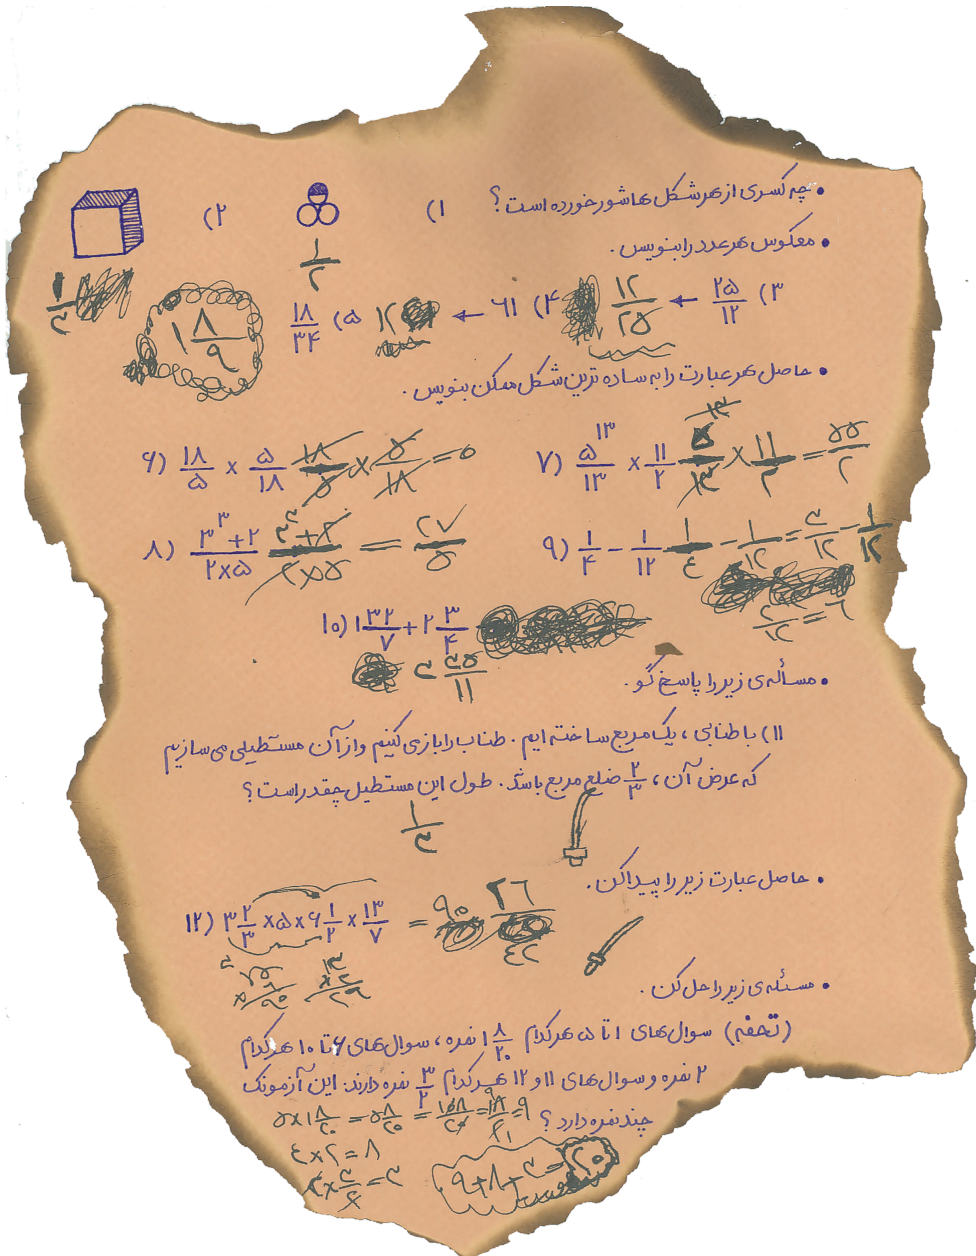 • چه کسری از هر شکل هاشور خورده است؟ ۱) ۲)
۱/۲
۱/۳
• معکوس هر عدد را بنویس.
۳) ۲۵/۱۲ ← ۱۲/۲۵ ۴) ۶۱ ← ۵) ۱۸/۳۴
۱ ۸/۹
• حاصل هر عبارت را به ساده ترین شکل ممکن بنویس.
۶) ۱۸/۵ × ۵/۱۸ ۱۸/۵ × ۵/۱۸ = ۰
۷) ۵^۱۳/۱۳ × ۱۱/۲ ۵^۱۳/۱۳ × ۱۱/۲ = ۵۵/۲
۸) ۳^۳+۲/۲×۵ ۳^۳+۲/۲×۵ = ۲۷/۵
۹) ۱/۴ - ۱/۱۲ ۱/۴ - ۱/۱۲ = ۳/۱۲ - ۱/۱۲
۲/۱۲ = ۶
۱۰) ۱ ۳۲/۷ + ۲ ۳/۴
۳ ۳۵/۱۱
• مسأله ی زیر را پاسخ گو.
۱۱) با طنابی، یک مربع ساخته ایم. طناب را باز می کنیم و از آن مستطیلی می سازیم
که عرض آن، ۲/۳ ضلع مربع باشد. طول این مستطیل چقدر است؟
۱/۳
• حاصل عبارت زیر را پیدا کن.
۱۲) ۳ ۲/۳ × ۵ × ۶ ۱/۲ × ۱۳/۷ = ۹۰ ۲۶/۴۲
• مسئله ی زیر را حل کن.
(تحفه) سوال های ۱ تا ۵ هرکدام ۱ ۸/۲۰ نمره، سوال های ۶ تا ۱۰ هرکدام
۲ نمره و سوال های ۱۱ و ۱۲ هرکدام ۳/۲ نمره دارند. این آزمونک
چند نمره دارد؟
۵×۱ ۸/۲۰ = ۵ ۸/۲۰ = ۱۰۸/۲۰ = ۱۸/۲ = ۹
۴×۲=۸
۲×۳/۲=۳
۹+۸+۳=۲۰